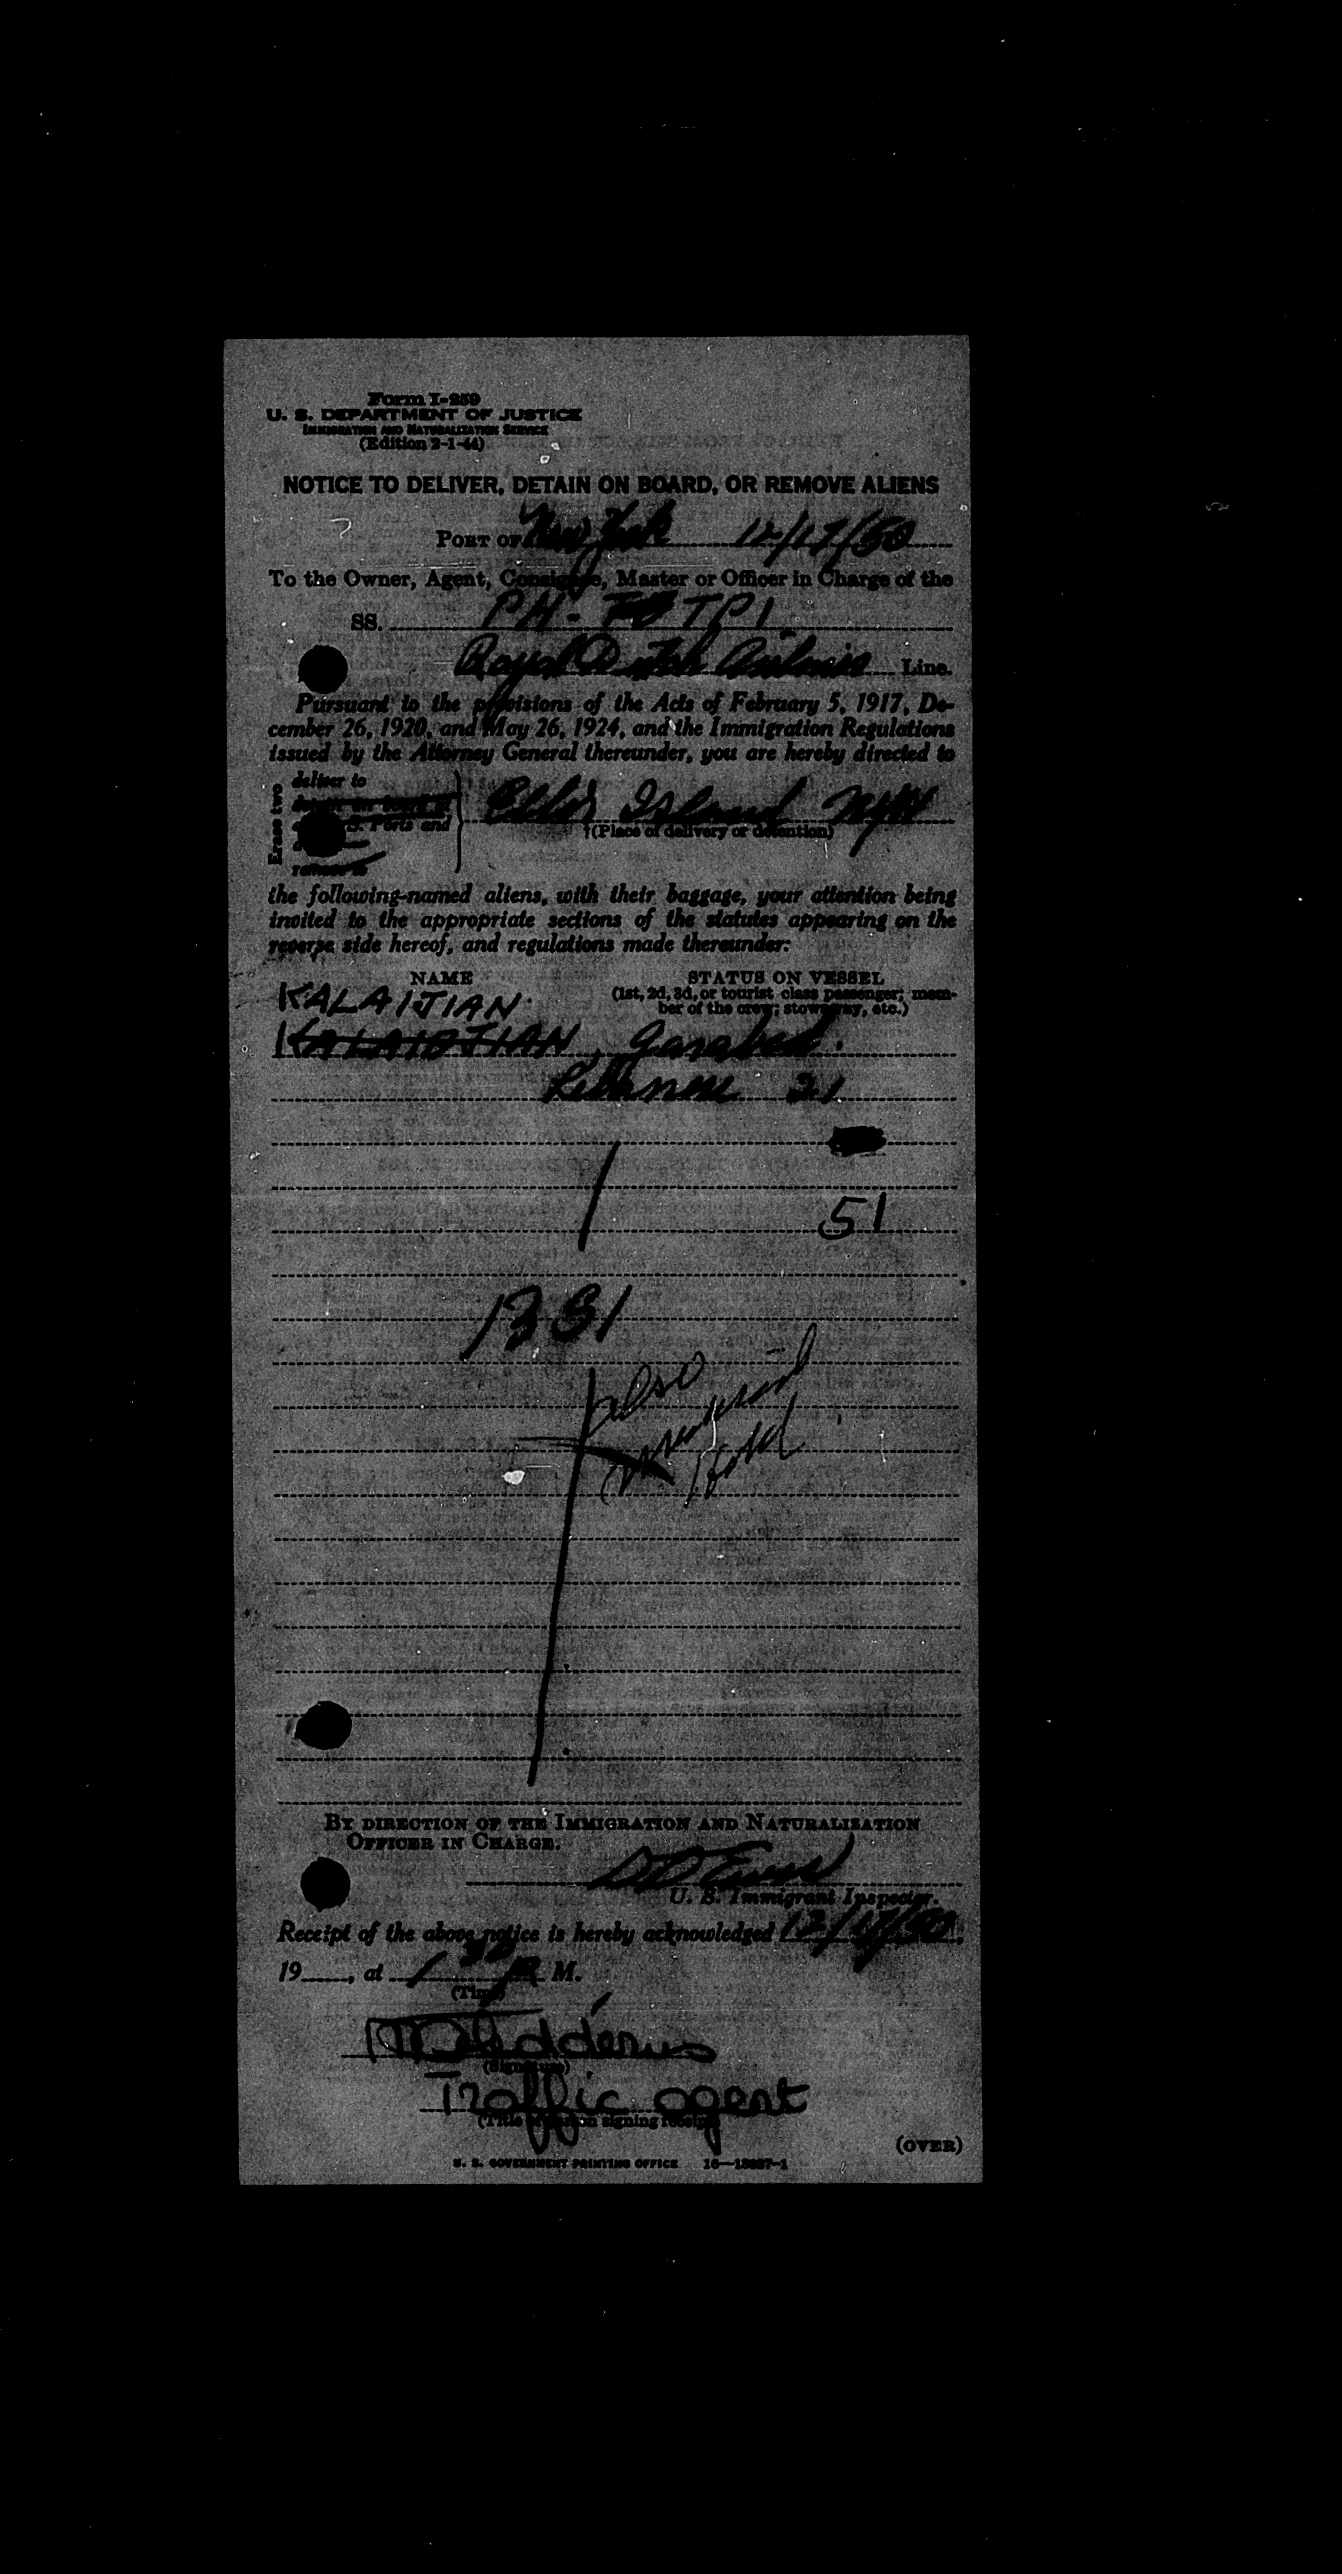 Form I-259
U. S. DEPARTMENT OF JUSTICE
IMMIGRATION AND NATURALIZATION SERVICE
(Edition 2-1-44)
NOTICE TO DELIVER, DETAIN ON BOARD, OR REMOVE ALIENS
PORT OF New York 12/17/50
To the Owner, Agent, Consignee, Master or Officer in Charge of the
SS. PH- TPI
Royal Dutch Airlines Line.
Pursuant to the provisions of the Acts of February 5, 1917, De-
cember 26, 1920, and May 26, 1924, and the Immigration Regulations
issued by the Attorney General thereunder, you are hereby directed to
Erase two
deliver to
detain on board at
S. Ports and
remove to
Ellis Island NYH
†(Place of delivery or detention)
the following-named aliens, with their baggage, your attention being
invited to the appropriate sections of the statutes appearing on the
reverse side hereof, and regulations made thereunder:
NAME STATUS ON VESSEL
(1st, 2d, 3d, or tourist class passenger; mem-
ber of the crew; stowaway, etc.)
KALAIJIAN
KALAIDJIAN, Garabed.
Lebanese 21
51
1331
also
Hold
BY DIRECTION OF THE IMMIGRATION AND NATURALIZATION
OFFICER IN CHARGE.
U. S. Immigrant Inspector.
Receipt of the above notice is hereby acknowledged 12/17/50,
19, at 1 30 P M.
(Time)
(Signature)
Traffic agent
(Title of person signing receipt)
(OVER)
U. S. GOVERNMENT PRINTING OFFICE 16—13927-1